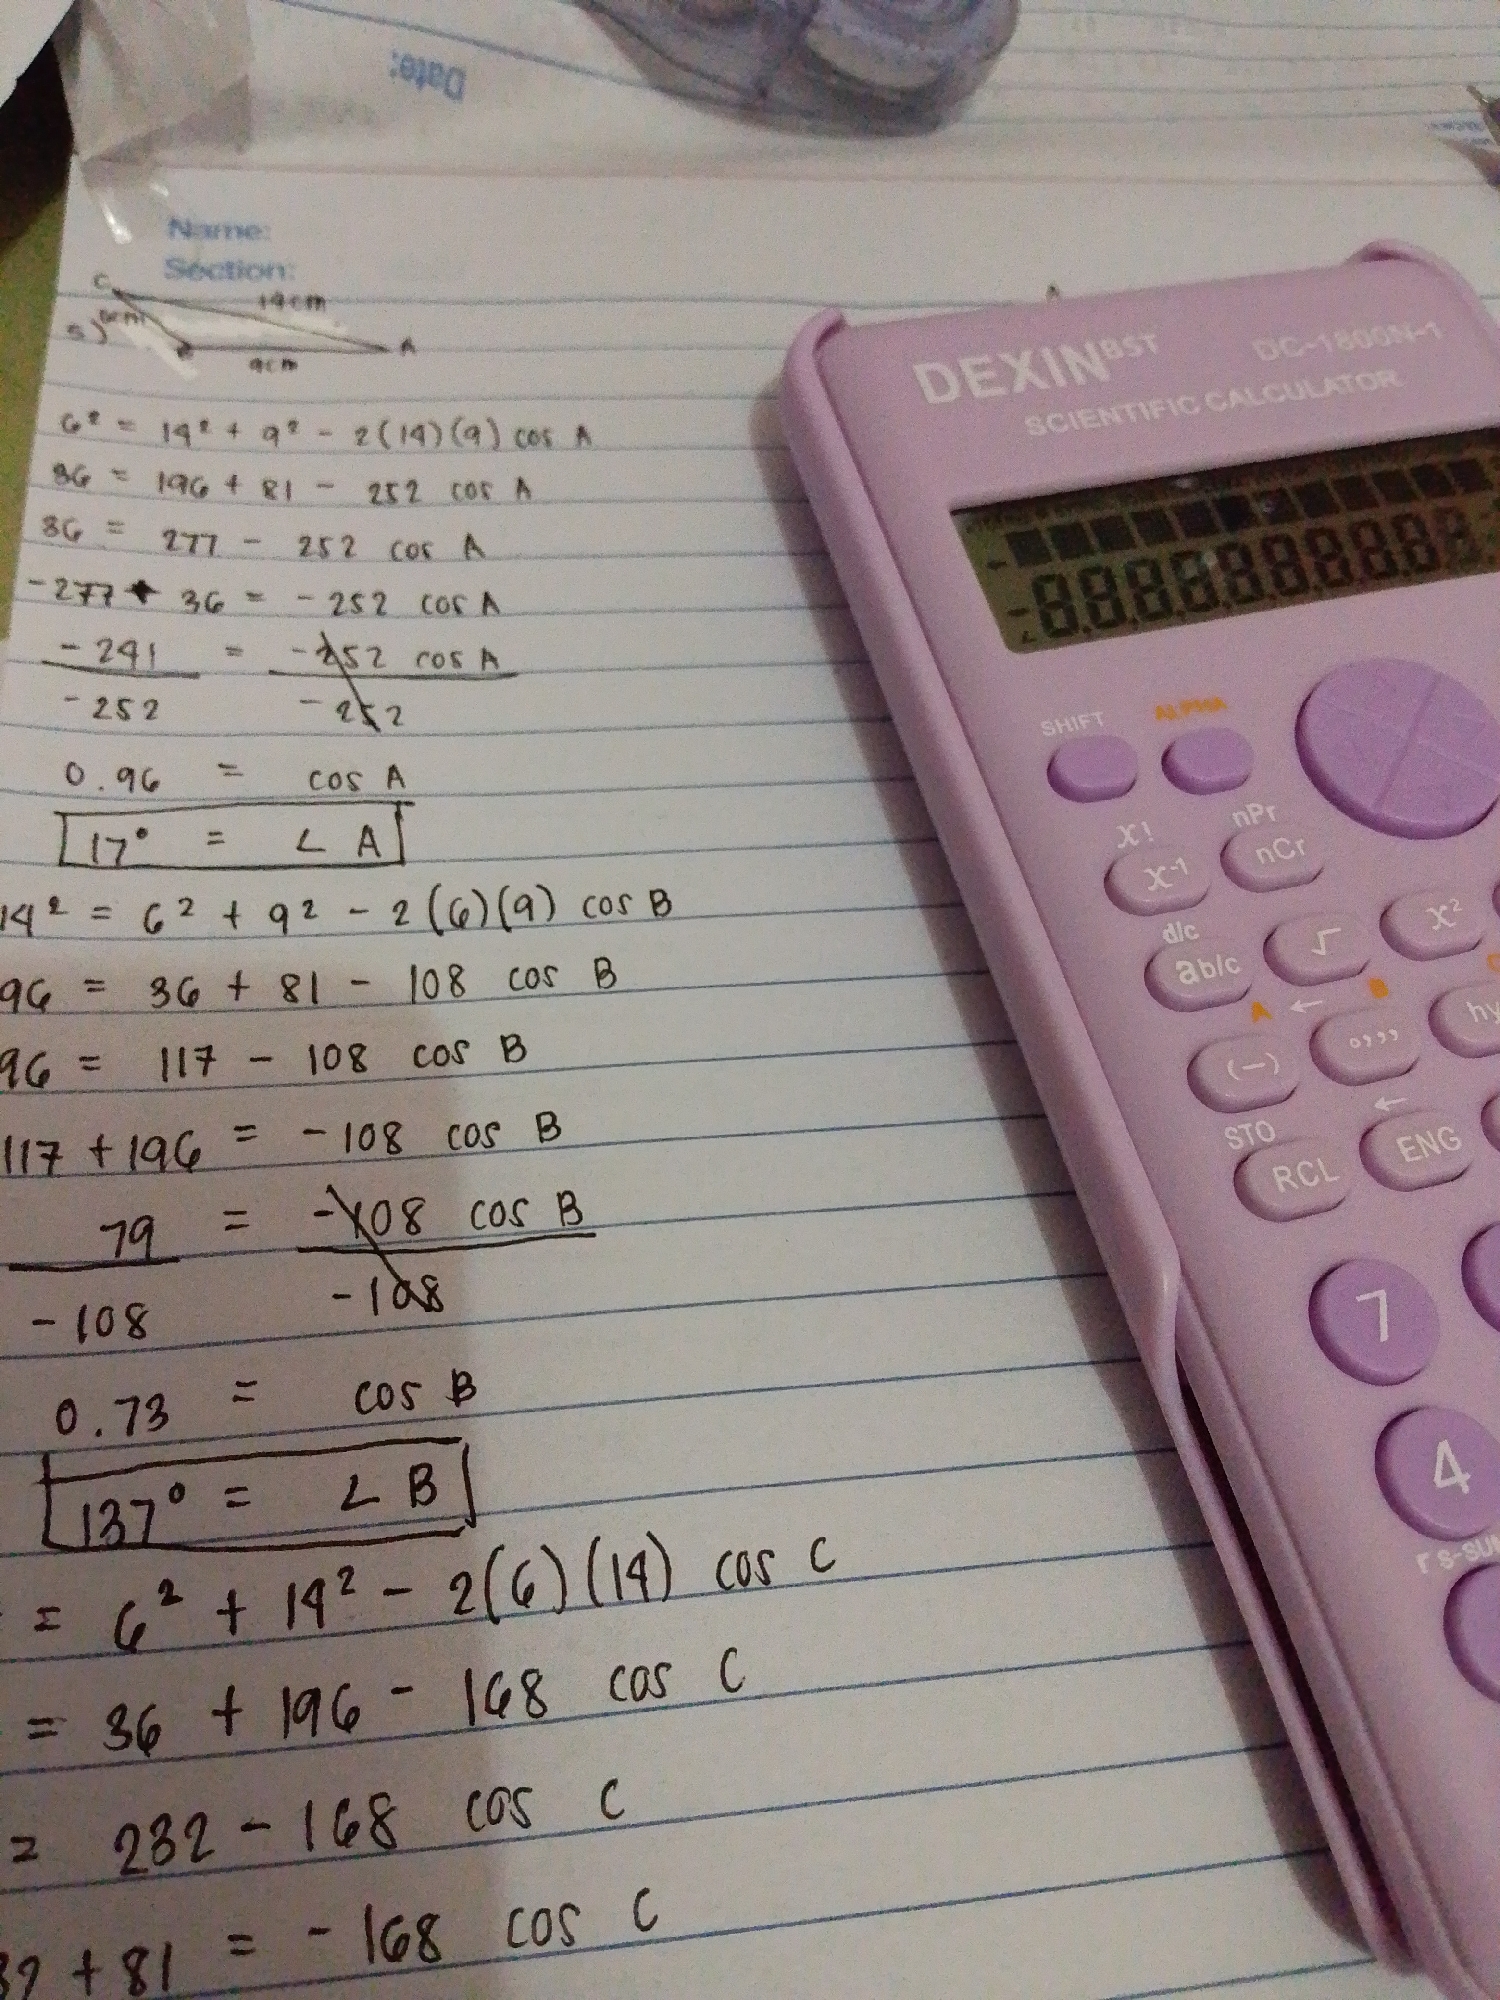 Date:
Name:
Section:
C
14cm
5)
6cm
A
9cm
6² = 14² + 9² - 2(14)(9) cos A
36 = 196 + 81 - 252 cos A
36 = 277 - 252 cos A
-277 + 36 = -252 cos A
-241 = -252 cos A
-252 -252
0.96 = cos A
17° = ∠ A
14² = 6² + 9² - 2(6)(9) cos B
96 = 36 + 81 - 108 cos B
96 = 117 - 108 cos B
117 + 196 = -108 cos B
79 = -108 cos B
-108 -108
0.73 = cos B
137° = ∠ B
= 6² + 14² - 2(6)(14) cos C
= 36 + 196 - 168 cos C
= 232 - 168 cos C
32 + 81 = -168 cos C
DEXIN BST
DC-1800N-1
SCIENTIFIC CALCULATOR
SHIFT ALPHA
x! nPr
x⁻¹ nCr
d/c
ab/c √ x²
A ← B
(−) °,,, hy
STO ←
RCL ENG
7
4